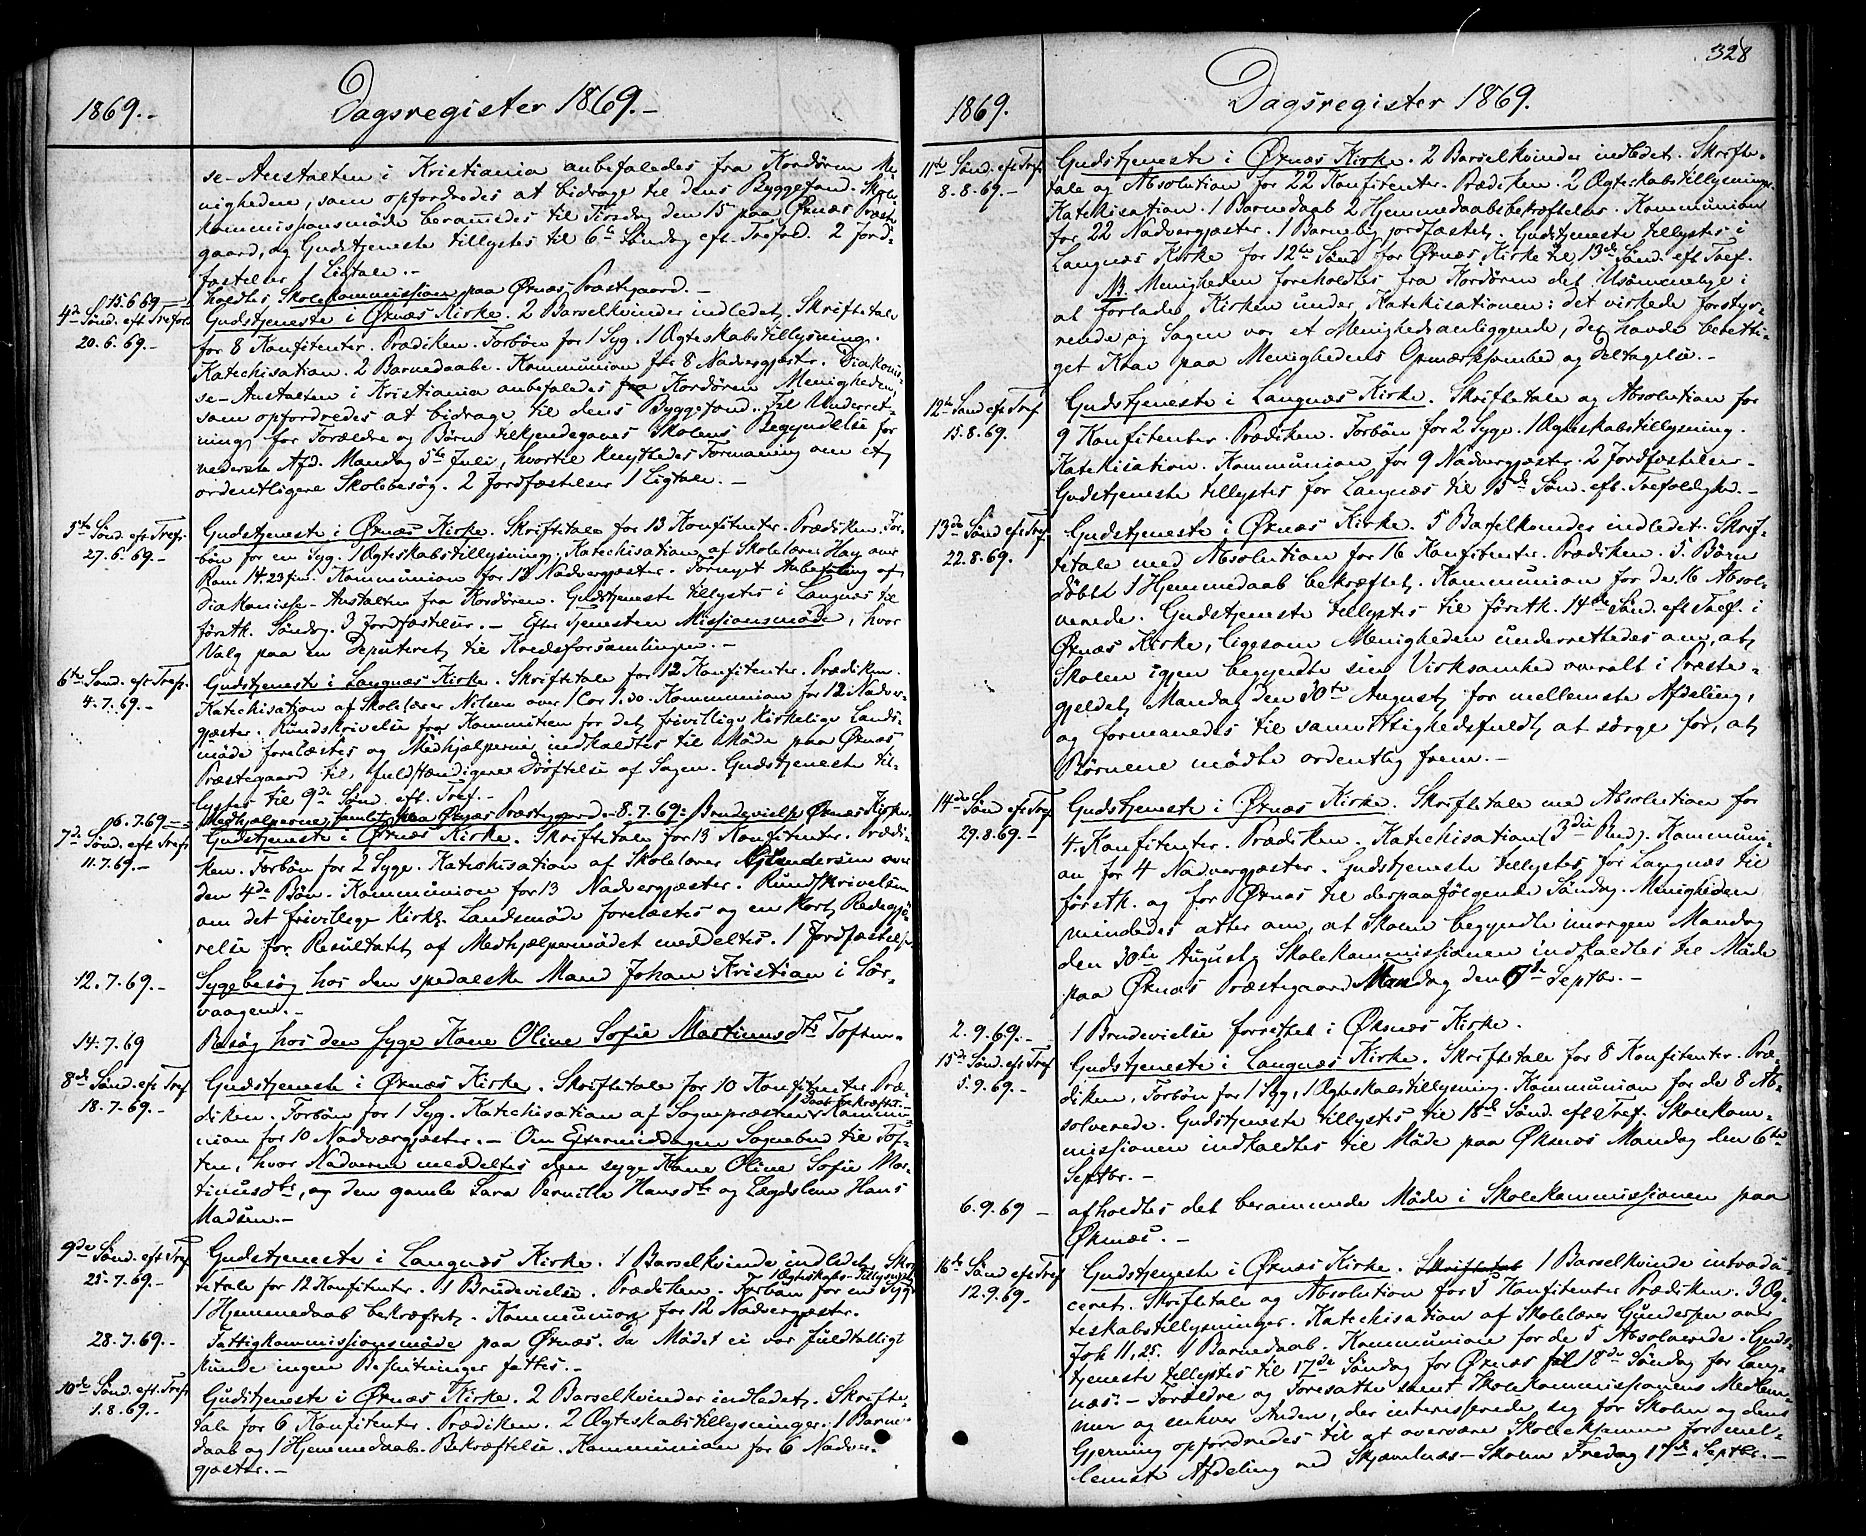 1869.-
Dagsregister 1869.-
se-Anstalten i Kristiania anbefaledes fra Kordøren Me-
nigheden, som opfordredes at bidrage til dens Byggefond. Skole-
kommissionsmøde berammedes til Tirsdag den 15 paa Øxnæs Præste-
gaard, og Gudstjeneste tillystes til 6te Søndag eft. Trefold. 2 Jord-
fæstelser 1 Ligtale.-
15.6.69 - holdtes Skolekommission paa Øxnæs Præstegaard.-
4de Sønd. eft Trefold. Gudstjeneste i Øxnæs Kirke. 2 Barselkvinder indledet. Skriftetale
20.6.69.- for 8 Konfitenter. Prædiken. Forbøn for 1 Syg. 1 Ægteskabstillysning.
Katechisation. 2 Barnedaabe. Kommunion for 8 Nadvergjæster. Diakonis-
se-Anstalten i Kristiania anbefaledes fra Kordøren Menigheden,
som opfordredes at bidrage til dens Byggefond. Til Underret-
ning for Forældre og Børn tilkjendegaves Skolens Begyndelse for
nederste Afd. Mandag 5te Juli, hvortil knyttedes Formaning om et
ordentligere Skolebesøg. 2 Jordfæstelser 1 Ligtale.-
5te Sønd. eft Tref. Gudstjeneste i Øxnæs Kirke. Skriftetale for 13 Konfitenter. Prædiken. For-
27.6.69.- bøn for en Syg. 1 Ægteskabstillysning. Katechisation af Skolelærer Hay over
Rom 14.23 fin. Kommunion for 13 Nadvergjæster. Fornyet Anbefaling af
Diakonisse-Anstalten fra Kordøren. Gudstjeneste tillystes i Langnæs til
førstk. Søndag. 3 Jordfæstelser.- Efter Tjenesten Missionsmøde, hvor
Valg paa en Deputeret til Kredsforsamlingen.-
6te Sønd. eft Tref. Gudstjeneste i Langnæs Kirke. Skriftetale for 12 Konfitenter. Prædiken.
4.7.69.- Katechisation af Skolelærer Nilsen over 1 Cor 1.30. Kommunion for 12 Nadver-
gjæster. Rundskrivelse fra Kommiteen for det frivillige kirkelige Lands-
møde forelæstes og Medhjælperne indkaldtes til Møde paa Øxnæs
Præstegaard til fuldstændigere Drøftelse af Sagen. Gudstjeneste til-
lystes til 9de Sønd. eft. Tref.-
6.7.69 - Medhjælperne samlet paa Øxnæs Præstegaard.- 8.7.69: Brudevielse Øxnæs Kirke.
7de Sønd. eft Tref. Gudstjeneste i Øxnæs Kirke. Skriftetale for 13 Konfitenter. Prædi-
11.7.69.- ken. Forbøn for 2 Syge. Katechisation af Skolelærer Gundersen over
den 4de Bøn. Kommunion for 13 Nadvergjæster. Rundskrivelsen
om det frivillige Kirkl. Landsmøde forelæstes og en kort Redegjø-
relse for Resultatet af Medhjælpermødet meddeltes. 1 Jordfæstelse.
12.7.69.- Sygebesøg hos den spedalske Mand Johan Kristian i Sør-
vaagen.-
14.7.69 Besøg hos den syge Kone Oline Sofie Martinusdtr Toften.-
8de Sønd. eft Tref Gudstjeneste i Øxnæs Kirke. Skriftetale for 10 Konfitenter. Præ-
18.7.69.- diken. Forbøn for 1 Syg. Katechisation af Sognepræsten. 1 Daab bekræftet. Kommu-
nion for 10 Nadvergjæster.- Om Eftermiddagen Sognebud til Tof-
ten, hvor Nadveren meddeltes den syge Kone Oline Sofie Mar-
tinusdtr, og den gamle Sara Pernille Hansdtr og Lægdslem Hans
Madsen.-
9de Sønd. eft Tref. Gudstjeneste i Langnæs Kirke. 1 Barselkvinde indledet. Skrif-
25.7.69.- tetale for 12 Konfitenter. 1 Brudevielse. Prædiken. 1 Ægteskabs-Tillysning. Forbøn for en Syg.
1 Hjemmedaab bekræftet. Kommunion for 12 Nadvergjæster.
28.7.69.- Fattigkommissionsmøde paa Øxnæs. Da Mødet ei var fuldtalligt
kunde ingen Beslutninger fattes.-
10de Sønd. eft. Tref. Gudstjeneste i Øxnæs Kirke. 2 Barselkvinder indledet. Skrifte-
1.8.69.- tale for 6 Konfitenter. Prædiken. 2 Ægteskabstillysninger. 1 Barne-
daab og 1 Hjemmedaabs-Bekræftelse. Kommunion for 6 Nadver-
gjæster.-
328
1869.
Dagsregister 1869.
11te Sønd. eft Tref. Gudstjeneste i Øxnæs Kirke. 2 Barselkvinder indledet. Skrifte-
8.8.69.- tale og Absolution for 22 Konfitenter. Prædiken. 2 Ægteskabstillysninger.
Katekisation. 1 Barnedaab 2 Hjemmedaabsbekræftelser. Kommunion
for 22 Nadvergjæster. 1 Barnelig jordfæstet. Gudstjeneste tillystes i
Langnæs Kirke for 12te Sønd. for Øxnæs Kirke til 13de Sønd. eft Tref.
NB. Menigheden foreholdtes fra Kordøren det Usømmelige i
at forlade Kirken under Katekisationen: det virkede forstyr-
rende, og Sagen var et Menighedsanliggende, der havde beretti-
get Krav paa Menighedens Opmærksomhed og Deltagelse.-
12te Sønd eft Tref Gudstjeneste i Langnæs Kirke. Skriftetale og Absolution for
15.8.69. 9 Konfitenter. Prædiken. Forbøn for 2 Syge. 1 Ægteskabstillysning.
Katekisation. Kommunion for 9 Nadvergjæster. 2 Jordfæstelser.-
Gudstjeneste tillystes for Langnæs til 15de Sønd. eft. Trefoldighed.-
13de Sønd eft Tref. Gudstjeneste i Øxnæs Kirke. 5 Barselkvinder indledet. Skrif-
22.8.69. tetale med Absolution for 16 Konfitenter. Prædiken. 5 Børn
døbte 1 Hjemmedaab bekræftet. Kommunion for de 16 Absol-
verede. Gudstjeneste tillystes til førstk. 14de Sønd. eft Tref. i
Øxnæs Kirke, ligesom Menigheden underrettedes om, at
Skolen igjen begyndte sin Virksomhed overalt i Præste-
gjeldet Mandag den 30te August for mellemste Afdeling,
og formanedes til samvittighedsfuldt at sørge for, at
Børnene mødte ordentlig frem.-
14de Sønd eft Tref Gudstjeneste i Øxnæs Kirke. Skriftetale med Absolution for
29.8.69.- 4 Konfitenter. Prædiken. Katechisation (3die Bud). Kommuni-
on for 4 Nadvergjæster. Gudstjeneste tillystes for Langnæs til
førstk. og for Øxnæs til derpaafølgende Søndag. Menigheden
mindedes atter om, at Skolen begyndte imorgen Mandag
den 30te August. Skolekommissionen indkaldtes til Møde
paa Øxnæs Præstegaard Mandag den 6te Septbr.-
2.9.69.- 1 Brudevielse forrettet i Øxnæs Kirke.
15de Sønd. eft Tref Gudstjeneste i Langnæs Kirke. Skriftetale for 8 Konfitenter. Præ-
5.9.69.- diken, Forbøn for 1 Syg, 1 Ægteskabstillysning. Kommunion for de 8 Ab-
solverede. Gudstjeneste tillystes til 18de Sønd. eft Tref. Skolekom-
missionen indkaldtes til Møde paa Øxnæs Mandag den 6te
Septbr.-
6.9.69 - afholdtes det berammede Møde i Skolekommissionen paa
Øxnæs.-
16de Sønd eft Tref Gudstjeneste i Øxnæs Kirke. Skriftetale 1 Barselkvinde introdu-
12.9.69.- ceret. Skriftetale og Absolution for 5 Konfitenter Prædiken. 3 Æg-
teskabstillysninger. Katechisation af Skolelærer Gundersen over
Joh 11,25. 1 Barnedaab. Kommunion for de 5 Absolverede. Guds-
tjeneste tillystes til 17de Søndag for Øxnæs til 18de Søndag for Lang-
næs.- Forældre og Foresatte samt Skolekommissionens Medlem-
mer og enhver Anden, der interesserede sig for Skolen og dens
Gjerning opfordredes til at overvære Skoleexamen for mel-
lemste Afdeling ved Skjævlnæs-Skolen Fredag 17de Septbr.-